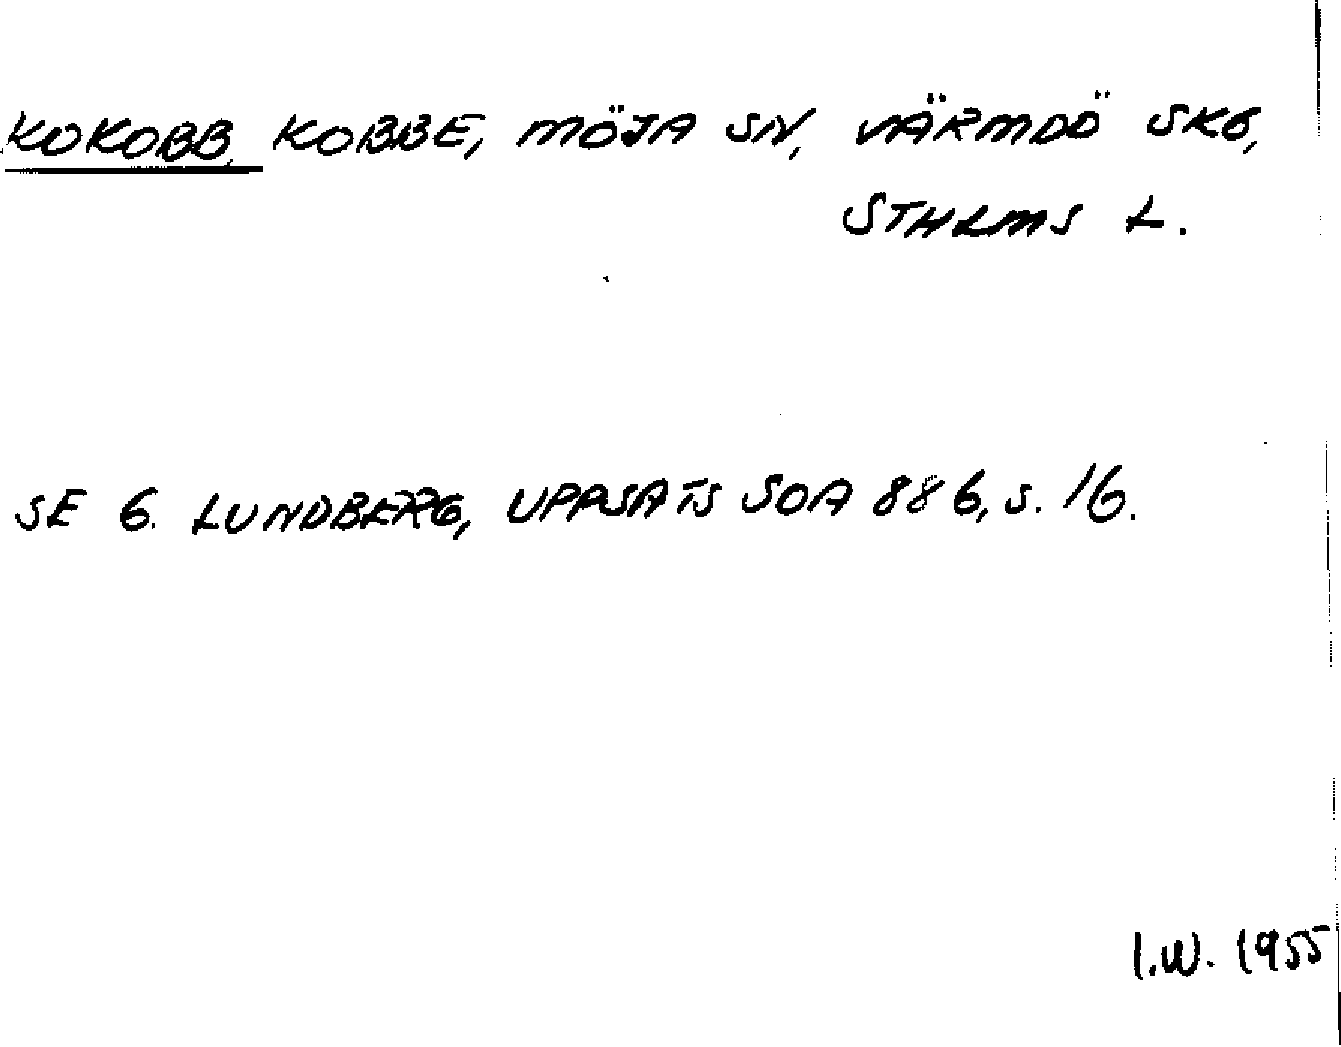 KOKOBB, KOBBE, MÖJA SN, VÄRMDÖ SKG,
STHLMS L.
SE G. LUNDBERG, UPPSATS SOA 886, S. 16.
I.W. 1955